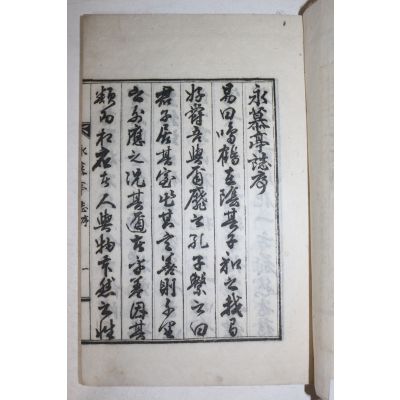 永慕亭誌序
易曰鳴鶴在陰其子和之我有
好爵吾與爾靡之孔子繫之曰
君子居其室出其言善則千里
之外應之況其邇者乎蓋因其
類而相應在人與物皆然之性
永慕亭誌序 一